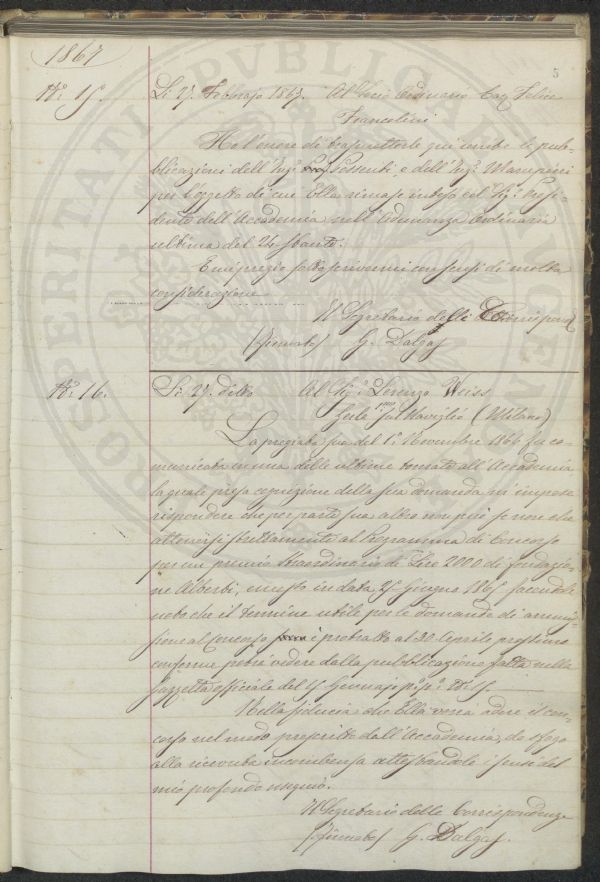 1867
5
N.° 15.
Li 27. Febbrajo 1867. Al Socio Ordinario Cav. Felice
Francolini
Ho l'onore di trasmetterle qui unite le pub-
blicazioni dell'Ing.e Possenti e dell'Ing.e
per l'oggetto di cui Ella rimase inteso col Sig.r Presi-
dente dell'Accademia nell'Adunanza Ordinaria
ultima del 24 stante.
E mi pregio sottoscrivermi con sensi di molta
considerazione
Il Segretario delle Corrispond.
(firmato) G. Dalgas
N.° 16.
Li 27. detto Al Sig.r Lorenzo Weiss
Naviglio (Milano)
La pregiata sua del 1.° Novembre 1866 fu co-
municata in una delle ultime tornate all'Accademia
la quale presa cognizione della sua domanda m'impose
rispondere che per parte sua altro non può se non che
attenersi strettamente al Programma di Concorso
per un premio straordinario di Lire 2000 di fondazio-
ne Alberti, emesso in data 25 Giugno 1865 facendole
noto che il termine utile per le domande di ammis-
sione al Concorso è protratto al 30 Aprile prossimo
conforme potrà vedere dalla pubblicazione fatta nella
Gazzetta Officiale del 15 Gennajo p.° p.° N.° 15.
Nella fiducia che Ella vorrà adire il con-
corso nel modo prescritto dall'Accademia, do sfogo
alla ricevuta incombenza attestandole i sensi del
mio profondo ossequio.
Il Segretario delle Corrispondenze
(firmato) G. Dalgas.